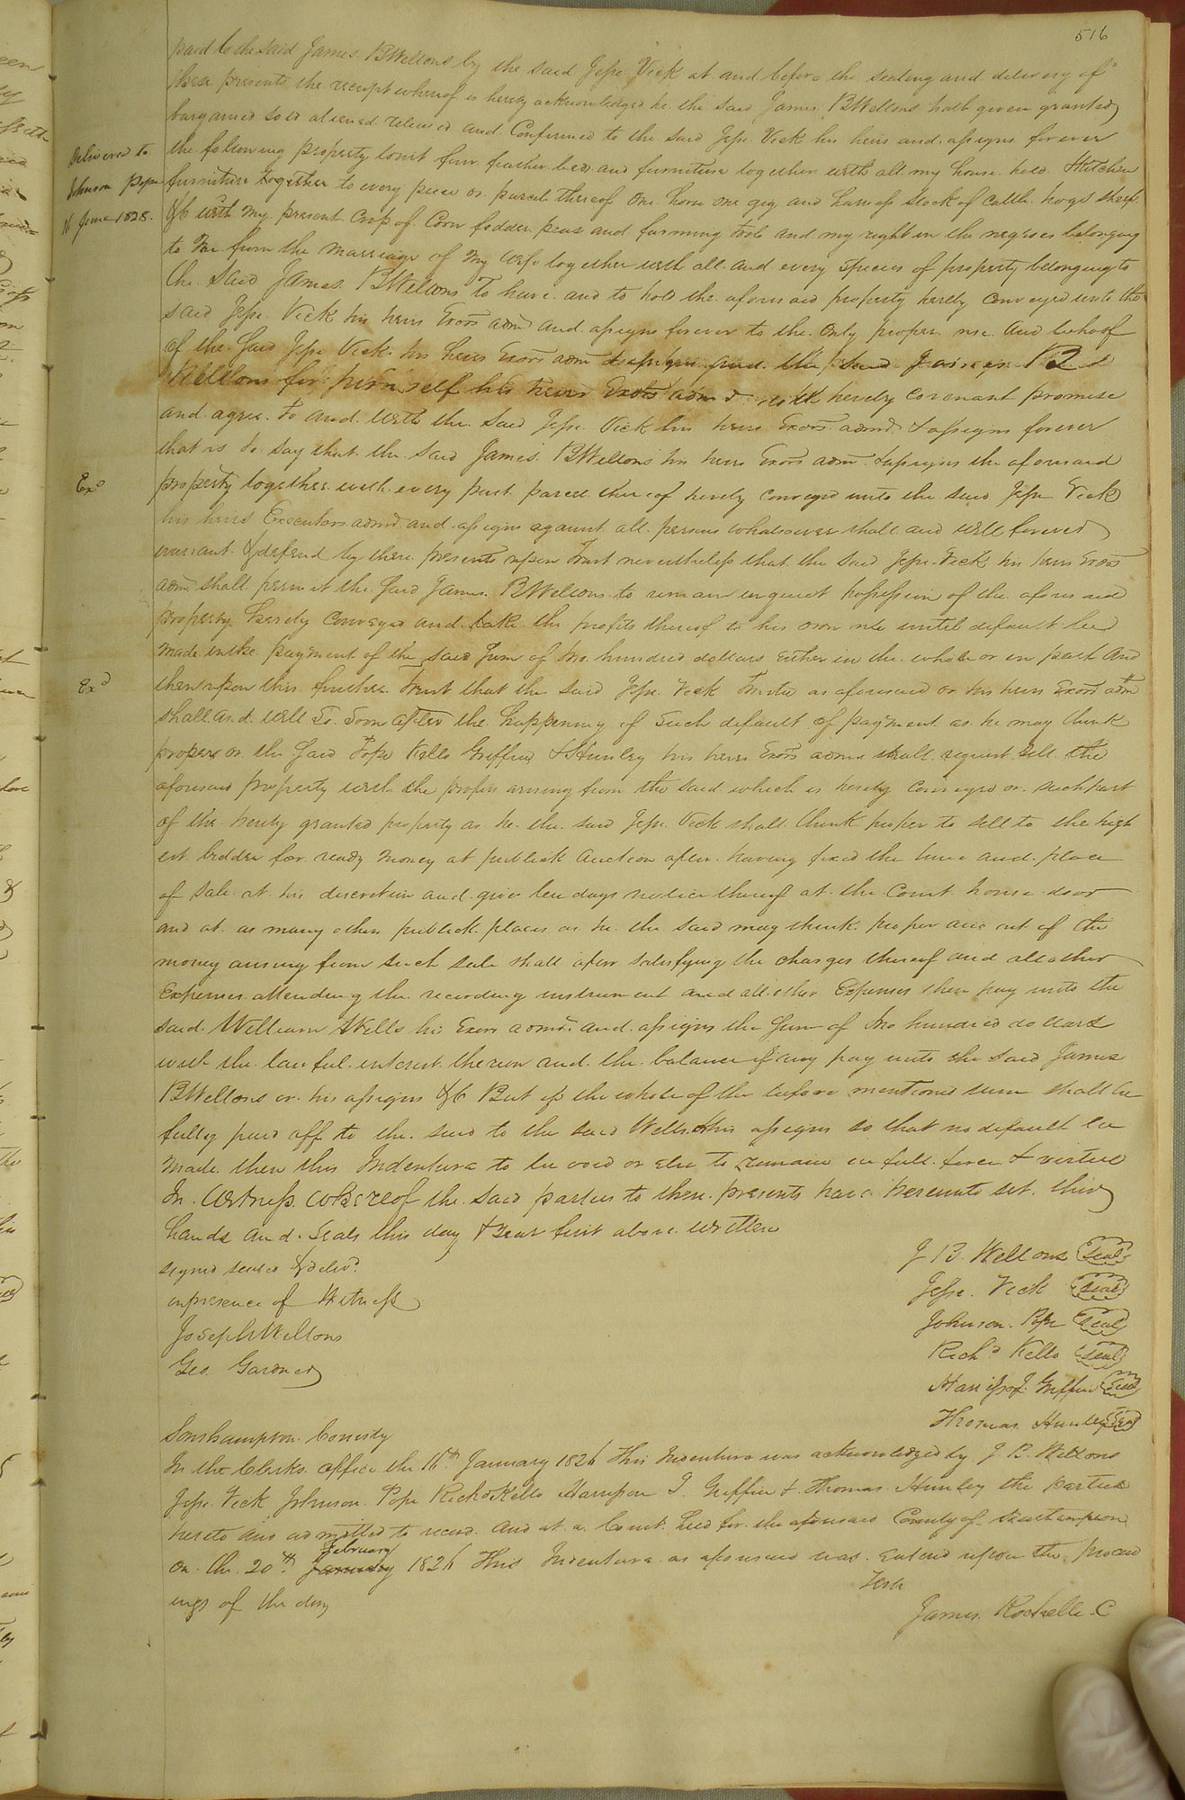 516
paid to the said James B Wellons by the said Jesse Vick at and before the sealing and delivery of
these presents the receipt whereof is hereby acknowledged he the said James B Wellons hath given granted
bargained sold aliened released and Confirmed to the said Jesse Vick his heirs and assigns forever
the following property towit four feather beds and furniture together with all my house hold Kitchen
furniture together to every piece or parcel thereof One horse one gig and harness Stock of Cattle hogs sheep
&c with my present Crop of Corn fodder peas and farming tools and my right in the negroes belonging
to me from the marriage of my wife together with all and every Species of property belonging to
the said James B Wellons To have and to hold the aforesaid property hereby Conveyed unto the
said Jesse Vick his heirs Exors adm and assigns forever to the only proper use and behoof
of the Said Jesse Vick his heirs Exors adm & assigns and the said James B
Wellons for himself his heirs Exors adm & doth hereby Covenant promise
and agree to and with the said Jesse Vick his heirs Exors admd & assigns forever
that is to say that the said James B Wellons his heirs Exors adm & assigns the aforesaid
property together with every part parcel thereof hereby conveyed unto the said Jesse Vick
his heirs Executors admd and assigns against all persons whatsoever shall and will forever
warrant & defend by these presents upon Trust nevertheless that the said Jesse Vick his heirs Exors
adm shall permit the Said James B Wellons to remain in quiet possession of the aforesaid
property hereby Conveyed and take the profits thereof to his own use until default be
made in the payment of the said Sum of two hundred dollars either in the whole or in part and
then upon this further trust that the said Jesse Vick Trustee as aforesaid or his heirs Exors adm
shall and will So Soon after the happening of Such default of payment as he may think
proper or the Said Pope Kello Griffin & Hunley his heirs Exors adms shall request Sell the
aforesaid property with the profits arising from the said which is hereby Conveyed or such part
of the hereby granted property as he the said Jesse Vick shall think proper to Sell to the high
est bidder for ready money at publick auction after having fixed the time and place
of Sale at his discretion and give ten days notice thereof at the Court house door
and at as many other publick places as he the said may think proper and out of the
money arising from such sale shall after satisfying the charges thereof and all other
Expenses attending the recording instrument and all other Expenses then pay unto the
said William Wells his Exors admr and assigns the Sum of two hundred dollars
with the lawful interest thereon and the balance if any pay unto the said James
B Wellons or his assigns &c But if the whole of the before mentioned sum shall be
fully paid off to the said to the said Wells & his assigns so that no default be
made then this Indenture to be void or else to remain in full force & virtue
In Witness whereof the said parties to these presents have hereunto set their
hands and Seals this day & year first above written
signed sealed & delivd
in presence of Witness
Joseph Wellons
Geo. Gardner
J B Wellons Seal
Jesse Vick Seal
Johnson Pope Seal
Richd Kello Seal
Harrison J. Griffin Seal
Thomas Hunley Seal
Southampton County
In the Clerks office the 16th January 1826 This Indenture was acknowledged by J. B. Wellons
Jesse Vick Johnson Pope Richd Kello Harrison J. Griffin & Thomas Hunley the parties
hereto and admitted to record And at a Court held for the aforesaid County of Southampton
February
on the 20th January 1826 This Indenture as aforesaid was Entered upon the proceed
ings of the day
Teste
James Rochelle C
Delivered to
Johnson Pope
16 June 1828.
Exd
Exd